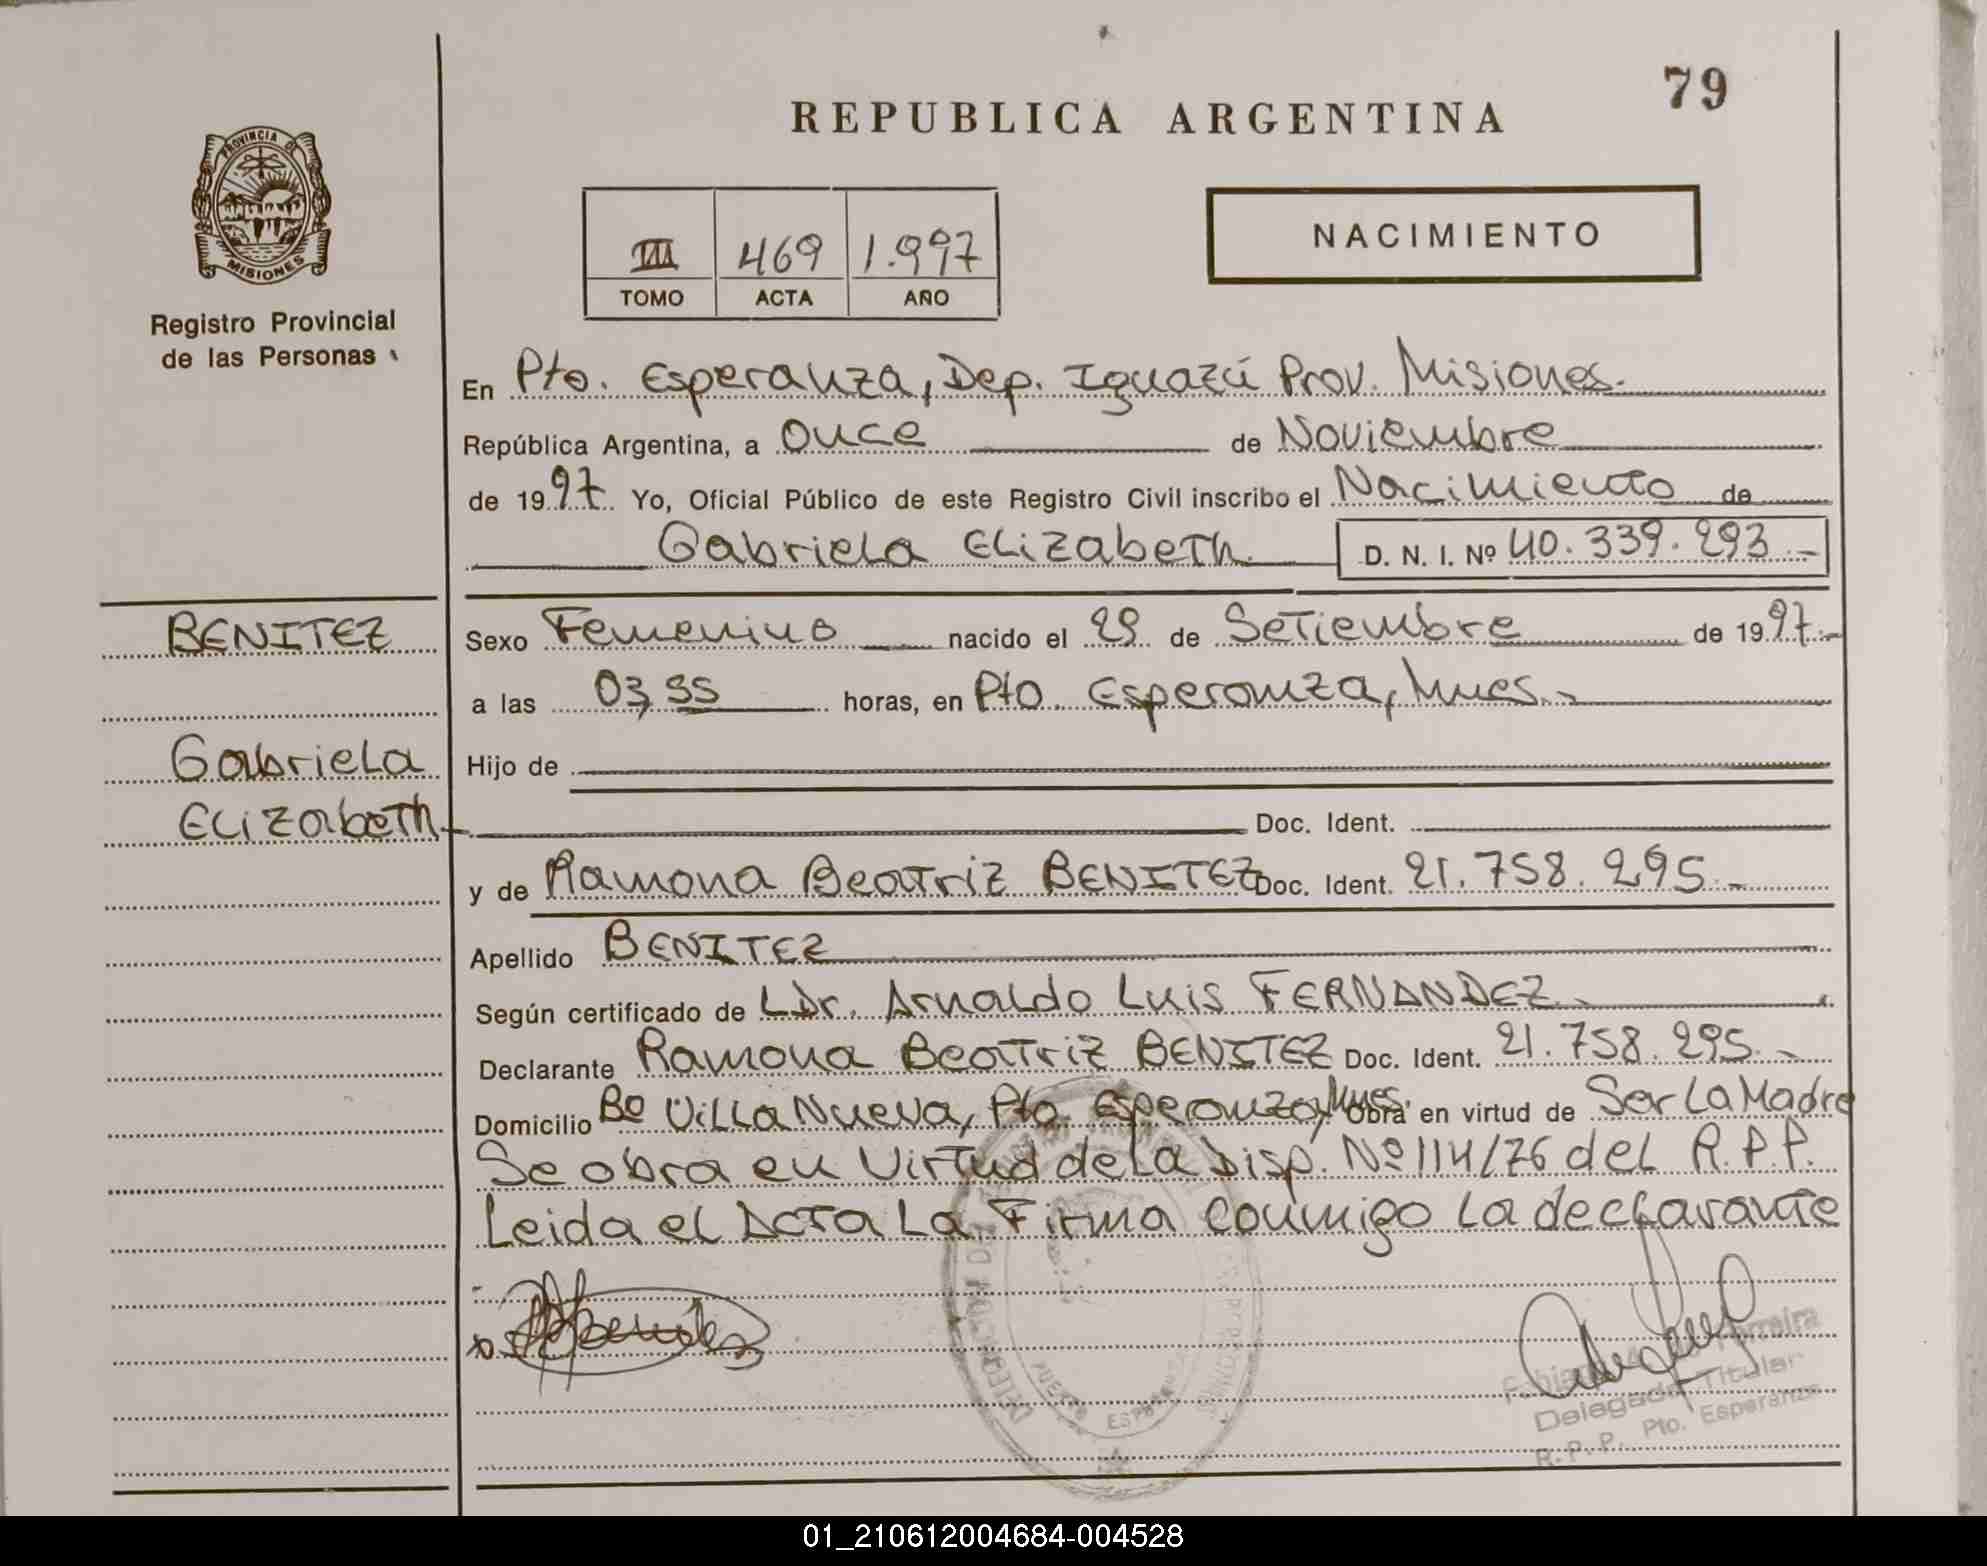 79
REPUBLICA ARGENTINA
PROVINCIA DE
MISIONES
Registro Provincial
de las Personas
III 469 1.997
TOMO ACTA AÑO
NACIMIENTO
En Pto. Esperanza, Dep. Iguazú Prov. Misiones.
República Argentina, a Once de Noviembre
de 1997. Yo, Oficial Público de este Registro Civil inscribo el Nacimiento de
Gabriela Elizabeth. D. N. I. Nº 40.339.293.-
BENITEZ
Gabriela
Elizabeth
Sexo Femenino nacido el 29 de Setiembre de 1997.-
a las 03,35 horas, en Pto. Esperanza, Mnes.-
Hijo de
Doc. Ident.
y de Ramona Beatriz BENITEZ Doc. Ident. 21.758.295.-
Apellido BENITEZ
Según certificado de LDr. Arnaldo Luis FERNANDEZ.
Declarante Ramona Beatriz BENITEZ Doc. Ident. 21.758.295.-
Domicilio Bº Villa Nueva, Pto. Esperanza, Mnes. Obra en virtud de Ser La Madre
Se obra en Virtud de La Disp. Nº 114/76 del R.P.P.
Leida el Acta La Firma conmigo La declarante
PUERTO ESPERANZA
Delegado Titular
R.P.P. Pto. Esperanza
01_210612004684-004528